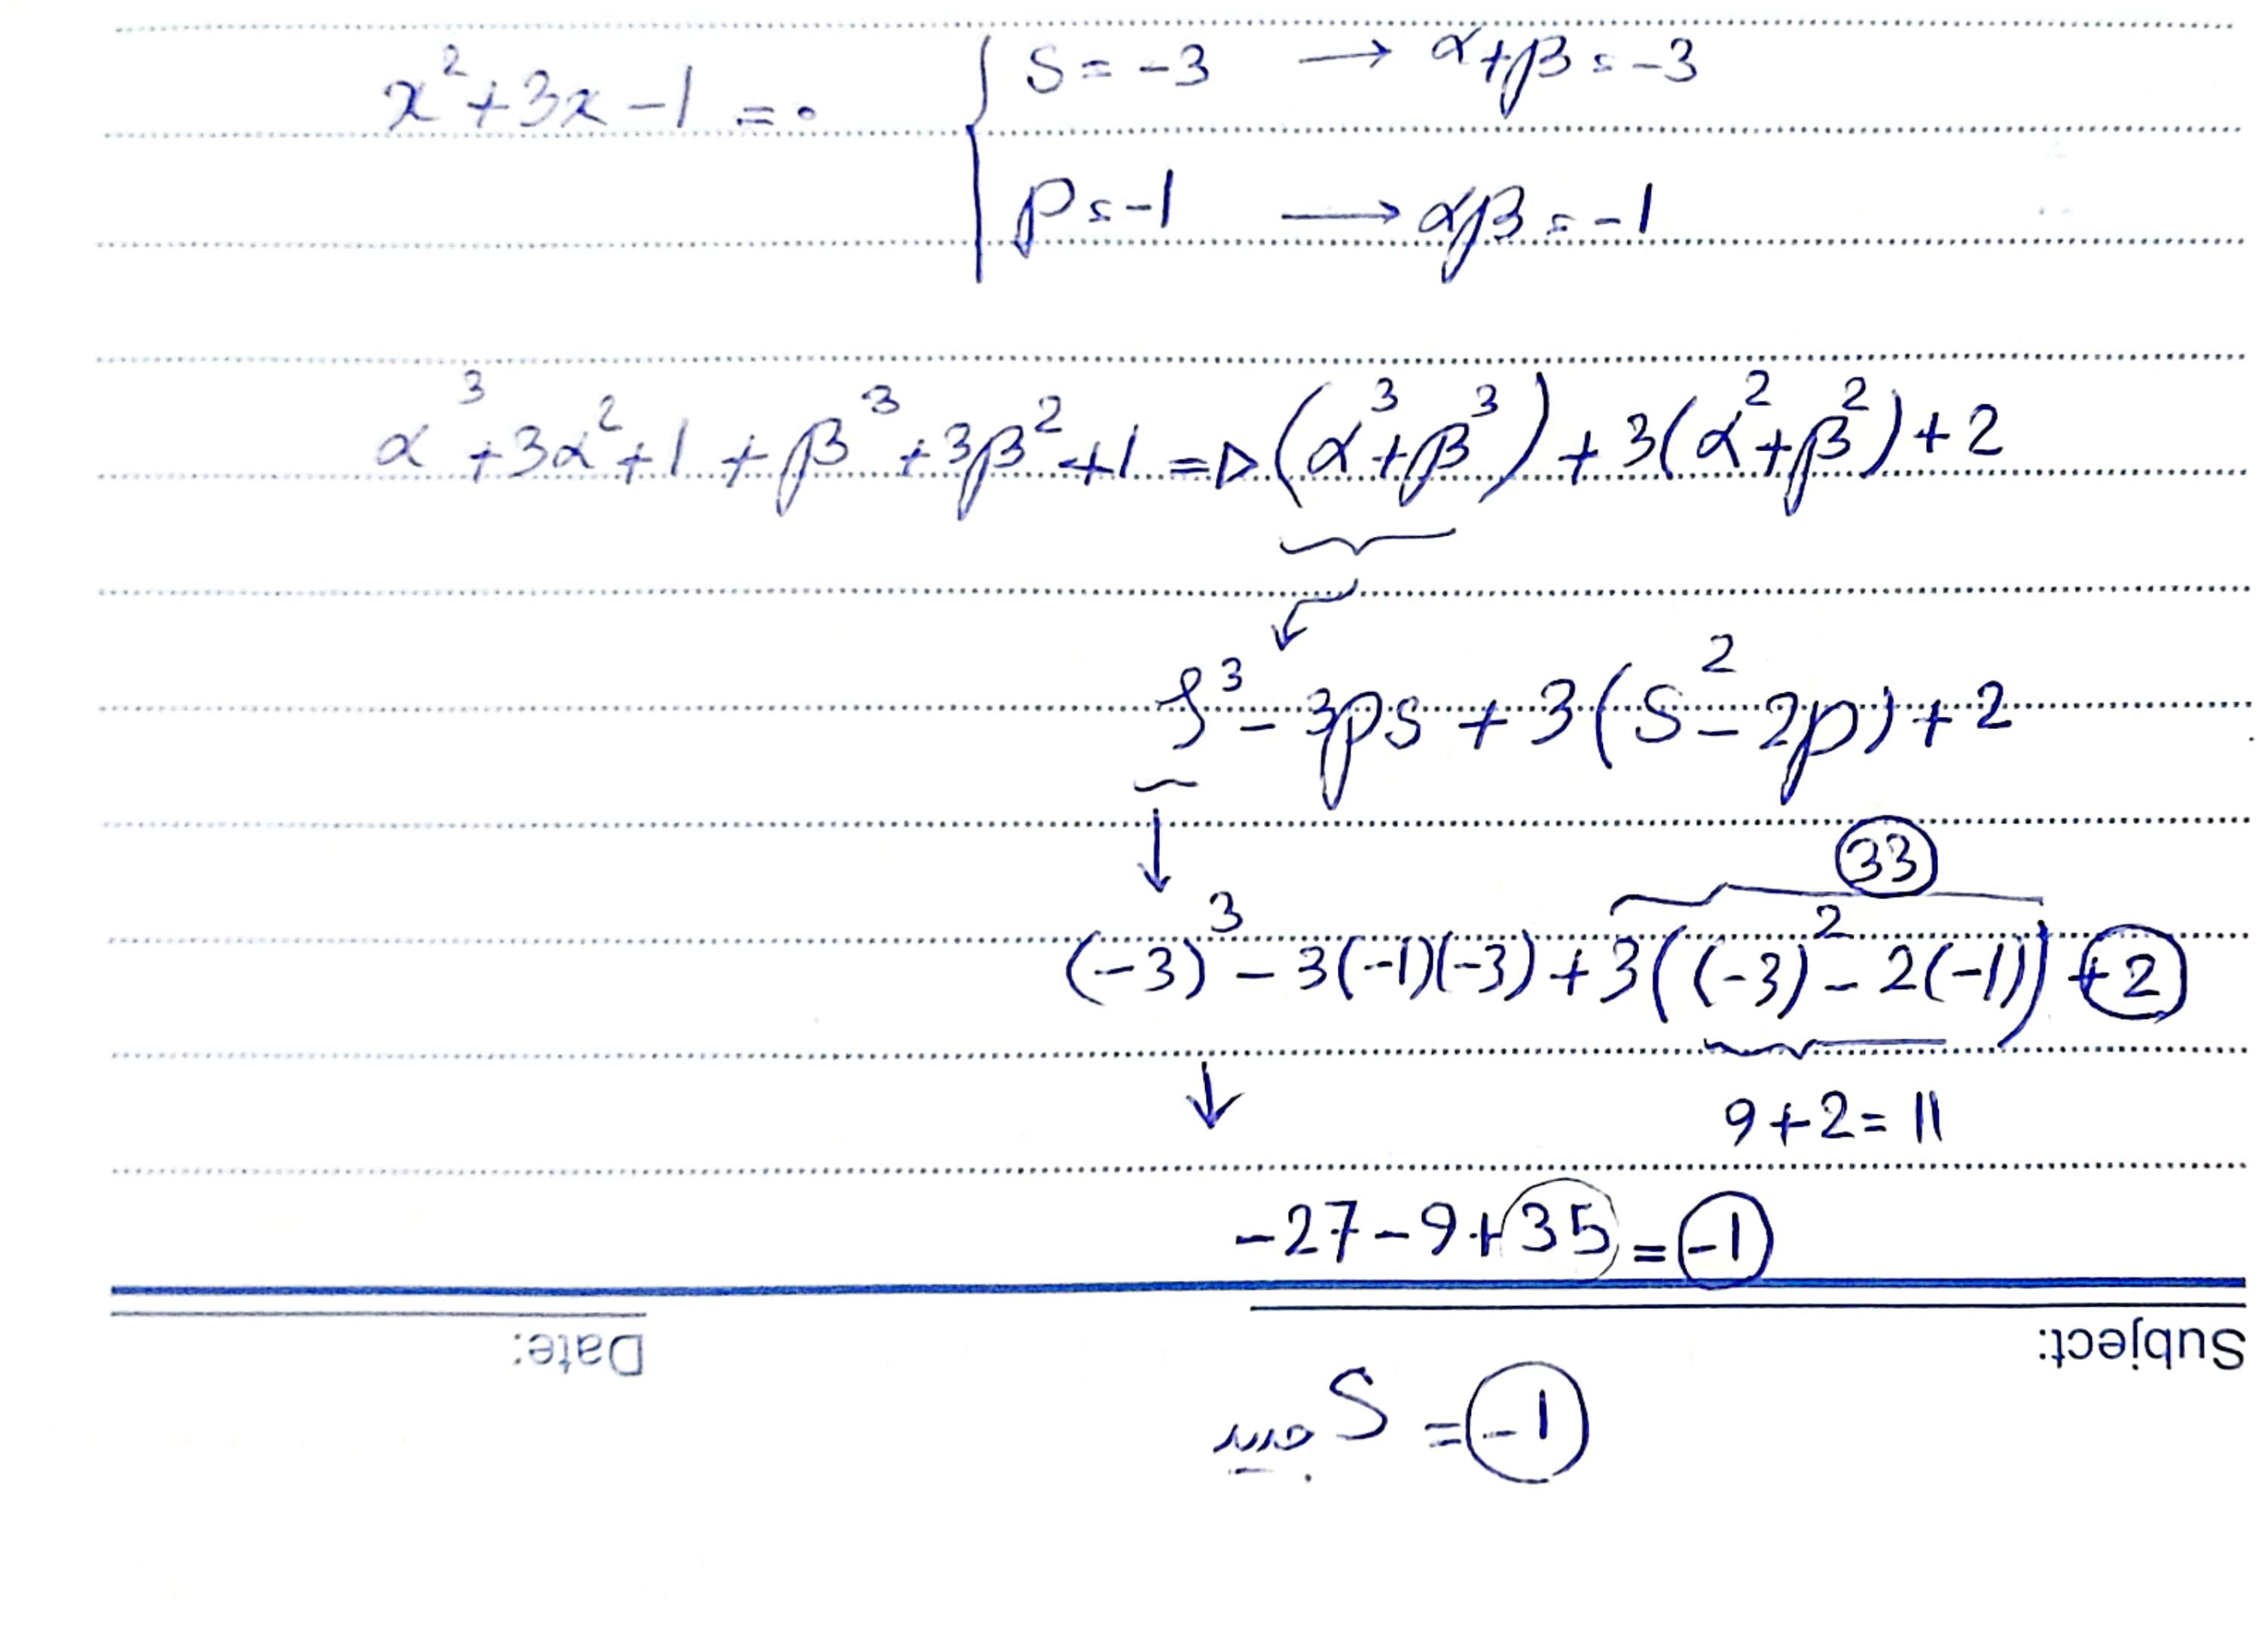 x²+3x-1=0 { S=-3 → α+β=-3
P=-1 → αβ=-1
α³+3α²+1+β³+3β²+1 => (α³+β³)+3(α²+β²)+2
S³-3PS+3(S²-2P)+2
33
(-3)³-3(-1)(-3)+3((-3)²-2(-1))+2
9+2=11
-27-9+35=-1
Subject:
Date:
S=-1